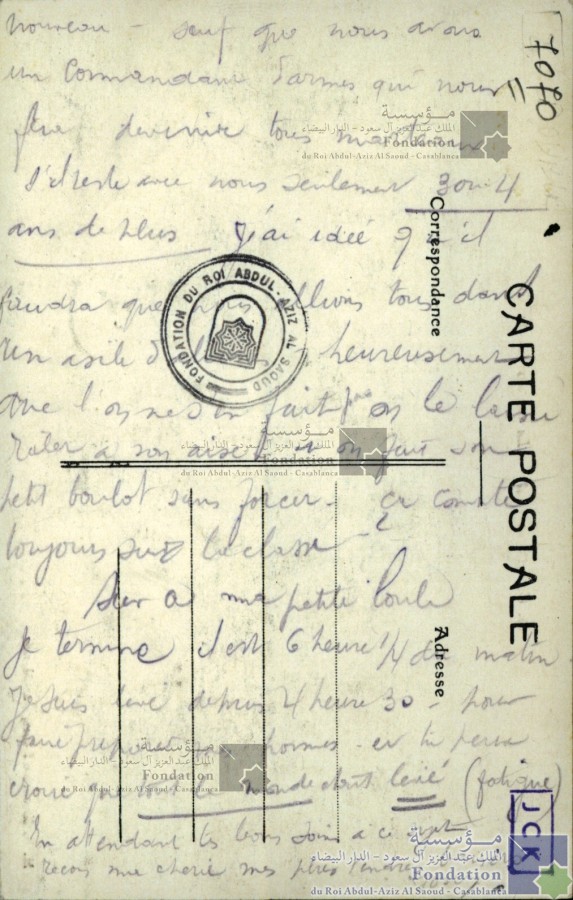 nouveau - sauf que nous avons
un Commandant d'armes qui nous
fera devenir tous
s'il reste avec nous seulement 3 ou 4
ans de plus j'ai idée qu'il
faudra que nous allions tous dans
un asile heureusement
que l'on s'en fait pas on le laisse
râler à son aise on fait son
petit boulot sans forcer - et compte
toujours sur la classe -
Sur ce ma petite Loulu
je termine il est 6 heure 1/4 du matin
Je suis levé depuis 4 heure 30 - pour
faire hommes - et tu peux
croire que monde était levé (fatigué)
En attendant tes bons soins à ce sujet
reçois ma chérie mes plus tendres
7070
CARTE POSTALE
Correspondance
Adresse
JCK
FONDATION DU ROI ABDUL-AZIZ AL SAOUD
مؤسسة
الملك عبد العزيز آل سعود - الدار البيضاء
Fondation
du Roi Abdul-Aziz Al Saoud - Casablanca
مؤسسة
الملك عبد العزيز آل سعود - الدار البيضاء
Fondation
du Roi Abdul-Aziz Al Saoud - Casablanca
مؤسسة
الملك عبد العزيز آل سعود - الدار البيضاء
Fondation
du Roi Abdul-Aziz Al Saoud - Casablanca
مؤسسة
الملك عبد العزيز آل سعود - الدار البيضاء
Fondation
du Roi Abdul-Aziz Al Saoud - Casablanca